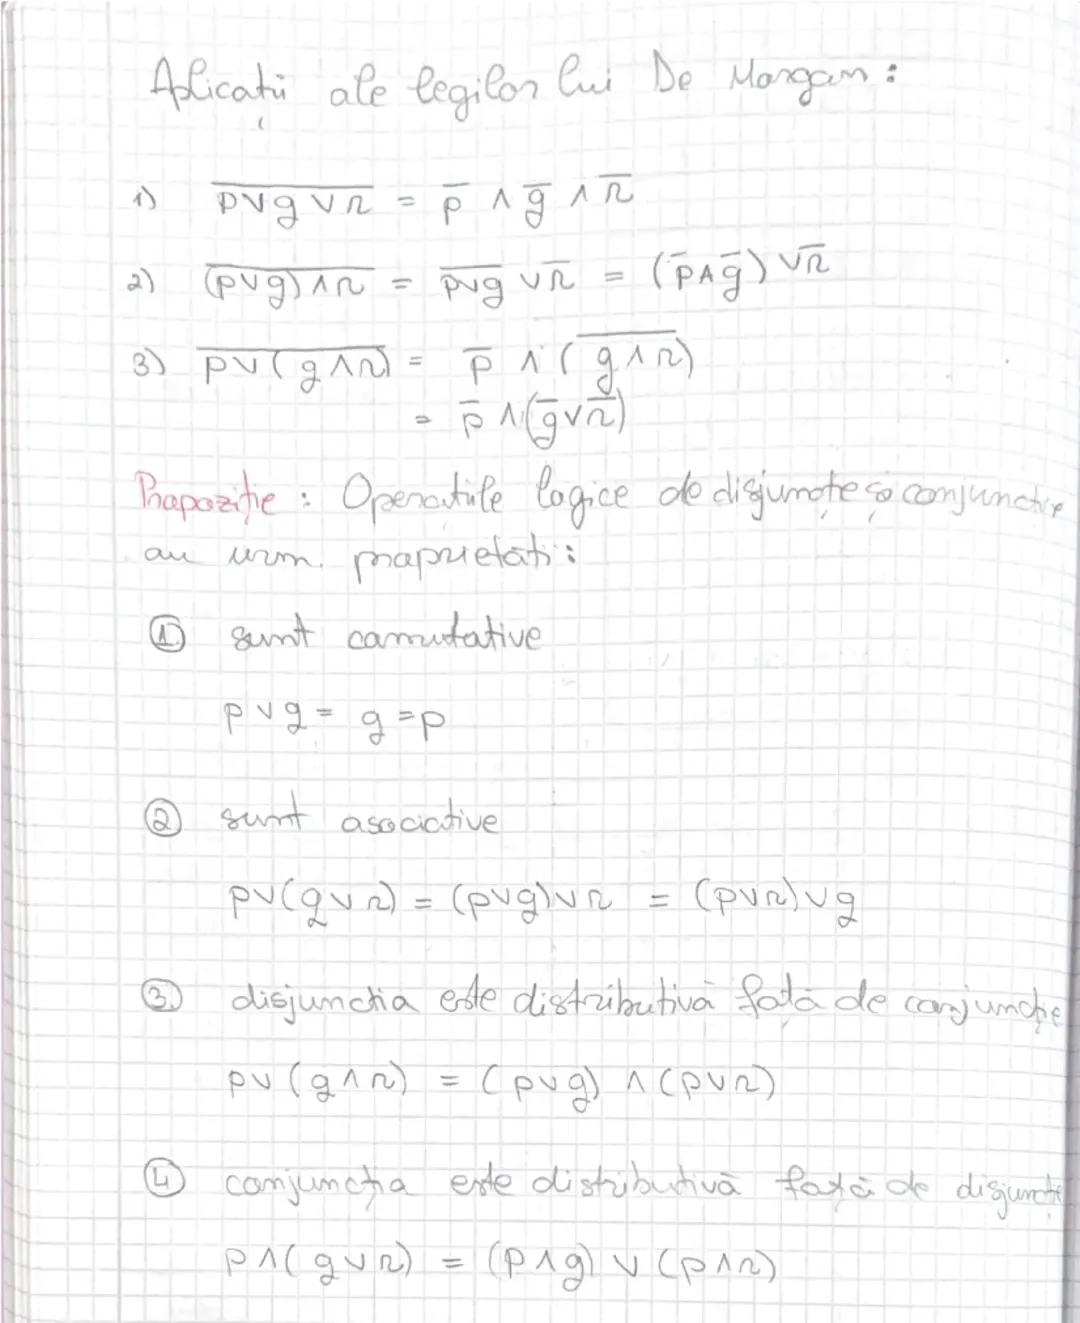 Aplicații ale legilor lui De Morgan:
1) \overline{p∨q∨r} = \overline{p} ∧ \overline{q} ∧ \overline{r}
2) \overline{(p∨q)∧r} = \overline{p∨q} ∨ \overline{r} = (\overline{p}∧\overline{q}) ∨ \overline{r}
3) \overline{p∨(q∧r)} = \overline{p} ∧ (\overline{q∧r})
= \overline{p} ∧ (\overline{q}∨\overline{r})
Propoziție: Operațiile logice de disjuncție și conjuncție
au urm. proprietăți:
① sunt comutative
p∨q = q = p
② sunt asociative
p∨(q∨r) = (p∨q)∨r = (p∨r)∨q
③ disjuncția este distributivă față de conjuncție
p∨(q∧r) = (p∨q) ∧ (p∨r)
④ conjuncția este distributivă față de disjuncție
p∧(q∨r) = (p∧q) ∨ (p∧r)